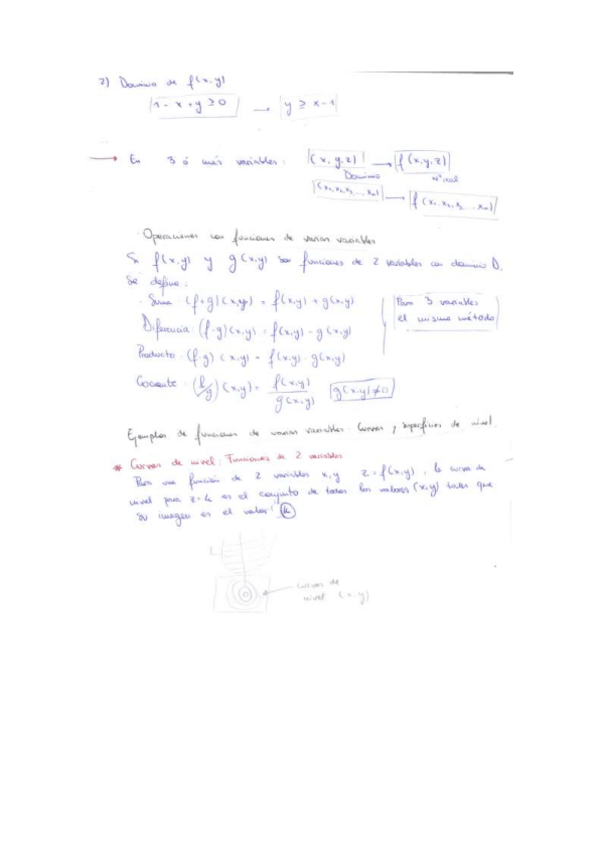 2) Dominio de f(x,y)
1 - x + y ≥ 0 → y ≥ x - 1
→ En 3 ó más variables: (x, y, z) → f(x,y,z)
Dominio nº real
(x₁, x₂, x₃, ..., xₙ) → f(x₁, x₂, x₃, ... xₙ)
Operaciones con funciones de varias variables
Si f(x,y) y g(x,y) son funciones de 2 variables con dominio D.
Se define:
· Suma: (f+g)(x,y) = f(x,y) + g(x,y)
Diferencia: (f-g)(x,y) = f(x,y) - g(x,y)
Producto: (f·g)(x,y) = f(x,y) · g(x,y)
Cociente: (f/g)(x,y) = f(x,y) / g(x,y) g(x,y) ≠ 0
Para 3 variables
el mismo método
Ejemplos de funciones de varias variables. Curvas y superficies de nivel.
* Curvas de nivel: Funciones de 2 variables
Para una función de 2 variables x, y z = f(x,y), la curva de
nivel para z = k es el conjunto de todos los valores (x,y) tales que
su imagen es el valor: k
curvas de
nivel (x,y)